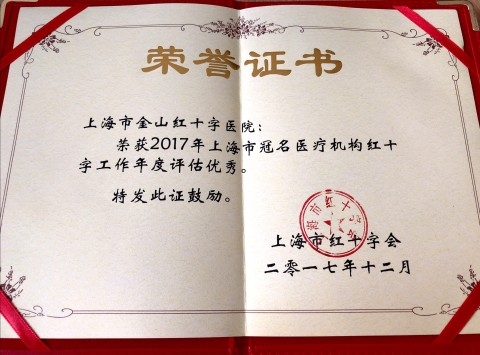 荣誉证书
上海市金山红十字医院：
荣获2017年上海市冠名医疗机构红十
字工作年度评估优秀。
特发此证鼓励。
上海市红十字会
二零一七年十二月